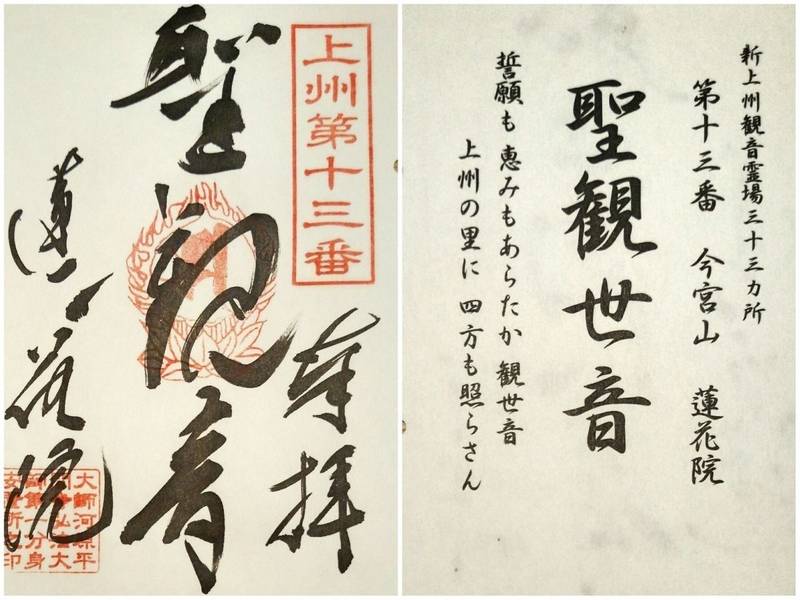 上州第十三番
奉拝
聖観音
蓮花院
新上州観音霊場三十三カ所
第十三番 今宮山 蓮花院
聖観世音
誓願も 恵みもあらたか 観世音
上州の里に 四方も照らさん